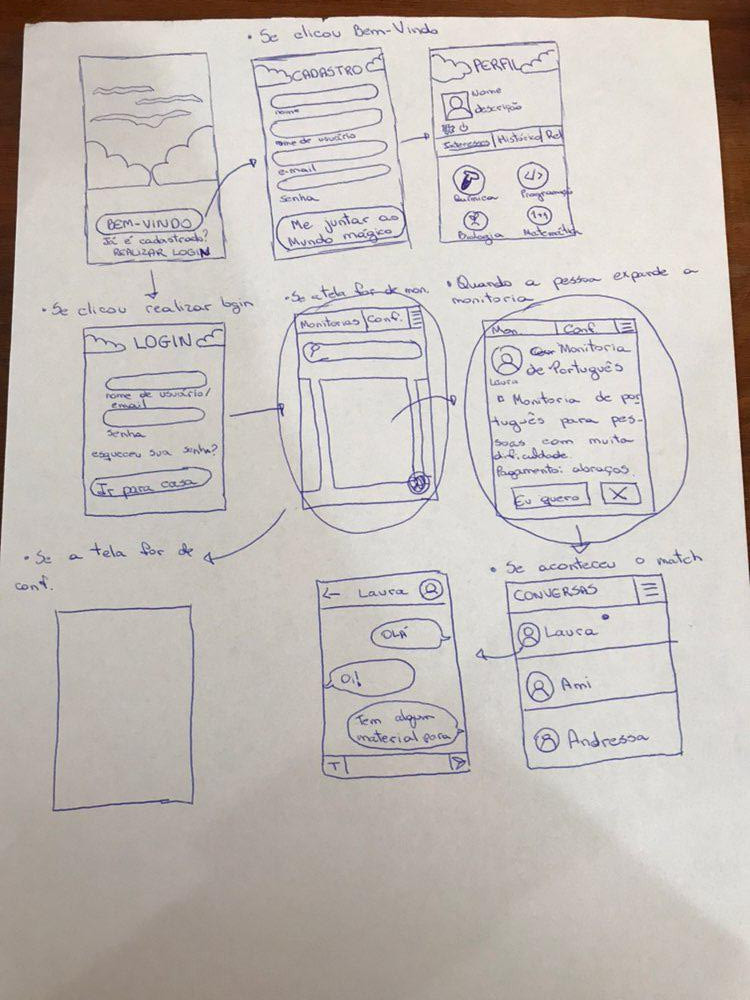 • Se clicou Bem-Vindo
BEM-VINDO
Já é cadastrado?
REALIZAR LOGIN
CADASTRO
nome
nome de usuário
e-mail
senha
Me juntar ao
Mundo mágico
PERFIL
Nome
descrição
Interesses
Histórico
Rel
Química
</>
Programação
Biologia
1+1
Matemática
• Se clicou realizar login
LOGIN
nome de usuário/
email
senha
esqueceu sua senha?
Ir para casa
• Se a tela for de mon.
Monitorias
Conf.
• Quando a pessoa expande a
monitoria
Mon.
Conf
Laura
Monitoria
de Português
Monitoria de por
tuguês para pes-
soas com muita
dificuldade.
Pagamento: abraços.
Eu quero
X
• Se a tela for de
conf.
← Laura
OLÁ
Oi!
Tem algum
material para
T
• Se aconteceu o match
CONVERSAS
Laura
Ami
Andressa